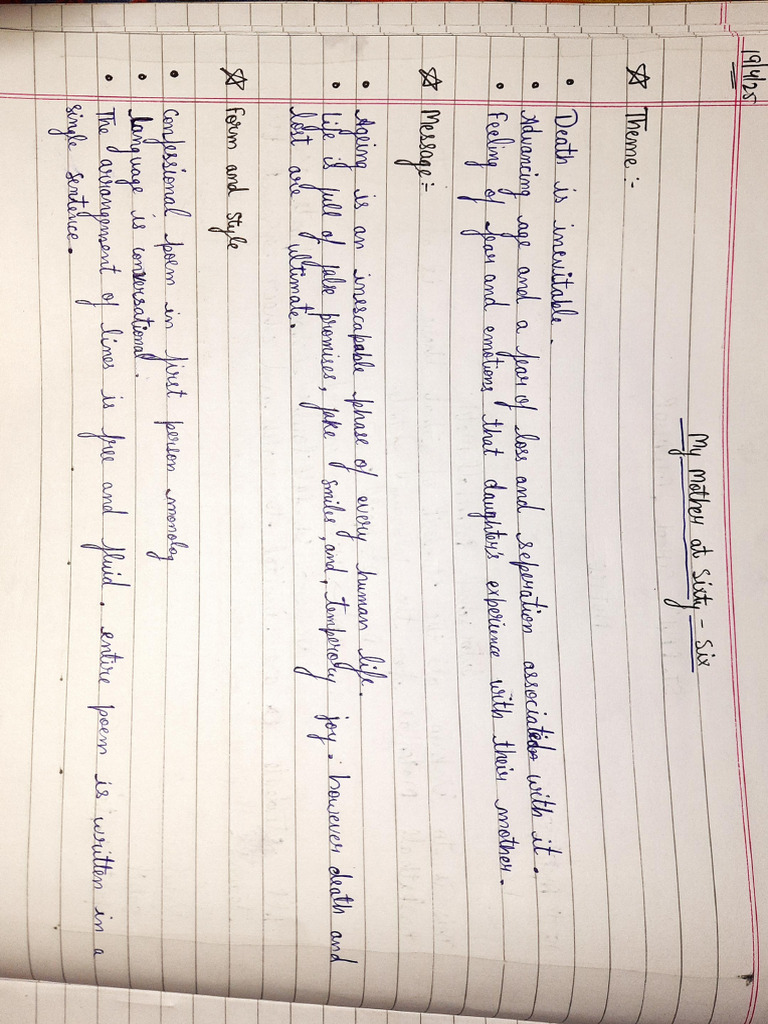 19/4/25
My Mother at Sixty - Six
☆ Theme :-
• Death is inevitable.
• Advancing age and a fear of loss and seperation association with it.
• Feeling of fear and emotions that daughters experience with their mother.
☆ Message:-
• Ageing is an inescapable phase of every human life.
• Life is full of false promises, fake smiles, and, temperory joy. however death and
lost are ultimate.
☆ Form and style
• Confessional poem in first person monolog
• Language is conversational.
• The arrangement of lines is free and fluid. entire poem is written in a
single sentence.